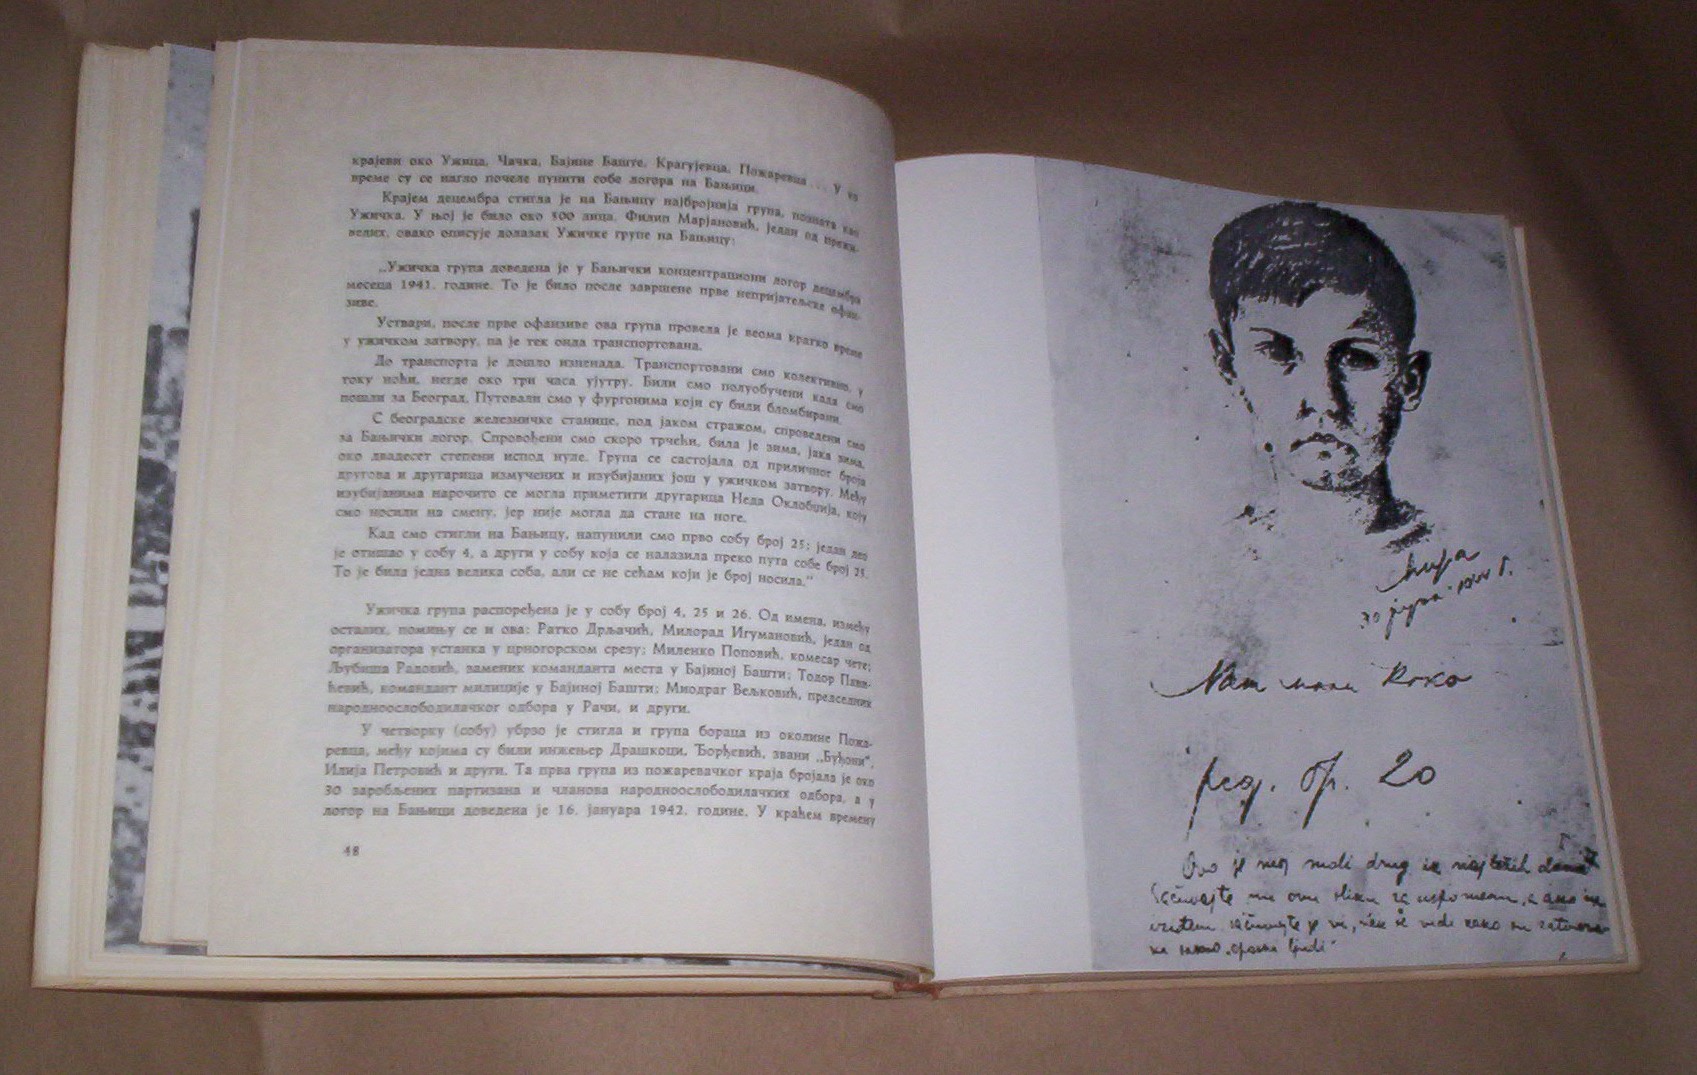 крајеви око Ужица, Чачка, Бајине Баште, Крагујевца, Пожаревца ... У то
време су се нагло почеле пунити собе логора на Бањици.
Крајем децембра стигла је на Бањицу најбројнија група, позната као
Ужичка. У њој је било око 300 лица. Филип Марјановић, један од прежи-
велих, овако описује долазак Ужичке групе на Бањицу:
„Ужичка група доведена је у Бањички концентрациони логор децембра
месеца 1941. године. То је било после завршене прве непријатељске офан-
зиве.
Уствари, после прве офанзиве ова група провела је веома кратко време
у ужичком затвору, па је тек онда транспортована.
До транспорта је дошло изненада. Транспортовани смо колективно, у
току ноћи, негде око три часа ујутру. Били смо полуобучени када смо
пошли за Београд. Путовали смо у фургонима који су били бломбирани.
С београдске железничке станице, под јаком стражом, спроведени смо
за Бањички логор. Спровођени смо скоро трчећи, била је зима, јака зима,
око двадесет степени испод нуле. Група се састојала од приличног броја
другова и другарица измучених и изубијаних још у ужичком затвору. Међу
изубијанима нарочито се могла приметити другарица Неда Оклобџија, коју
смо носили на смену, јер није могла да стане на ноге.
Кад смо стигли на Бањицу, напунили смо прво собу број 25; један део
је отишао у собу 4, а други у собу која се налазила преко пута собе број 25.
То је била једна велика соба, али се не сећам који је број носила.“
Ужичка група распоређена је у собу број 4, 25 и 26. Од имена, између
осталих, помињу се и ова: Ратко Дрљачић, Милорад Игумановић, један од
организатора устанка у црногорском срезу; Миленко Поповић, комесар чете;
Љубиша Радовић, заменик команданта места у Бајиној Башти; Тодор Пави-
ћевић, командант милиције у Бајиној Башти; Миодраг Вељковић, председник
народноослободилачког одбора у Рачи, и други.
У четворку (собу) убрзо је стигла и група бораца из околине Пожа-
ревца, међу којима су били инжењер Драшкоци, Ђорђевић, звани „Буђони“,
Илија Петровић и други. Та прва група из пожаревачког краја бројала је око
30 заробљених партизана и чланова народноослободилачких одбора, а у
логор на Бањици доведена је 16. јануара 1942. године. У краћем времену
48
30 јуна 1944 г.
Nаш мали Коко
ред. бр. 20
Ovo je moj mali drug iz najtežih dana
Sačuvajte mi ovu sliku za uspomenu, a ako ne
izidjem, sačuvajte je vi, nek se vidi kako su